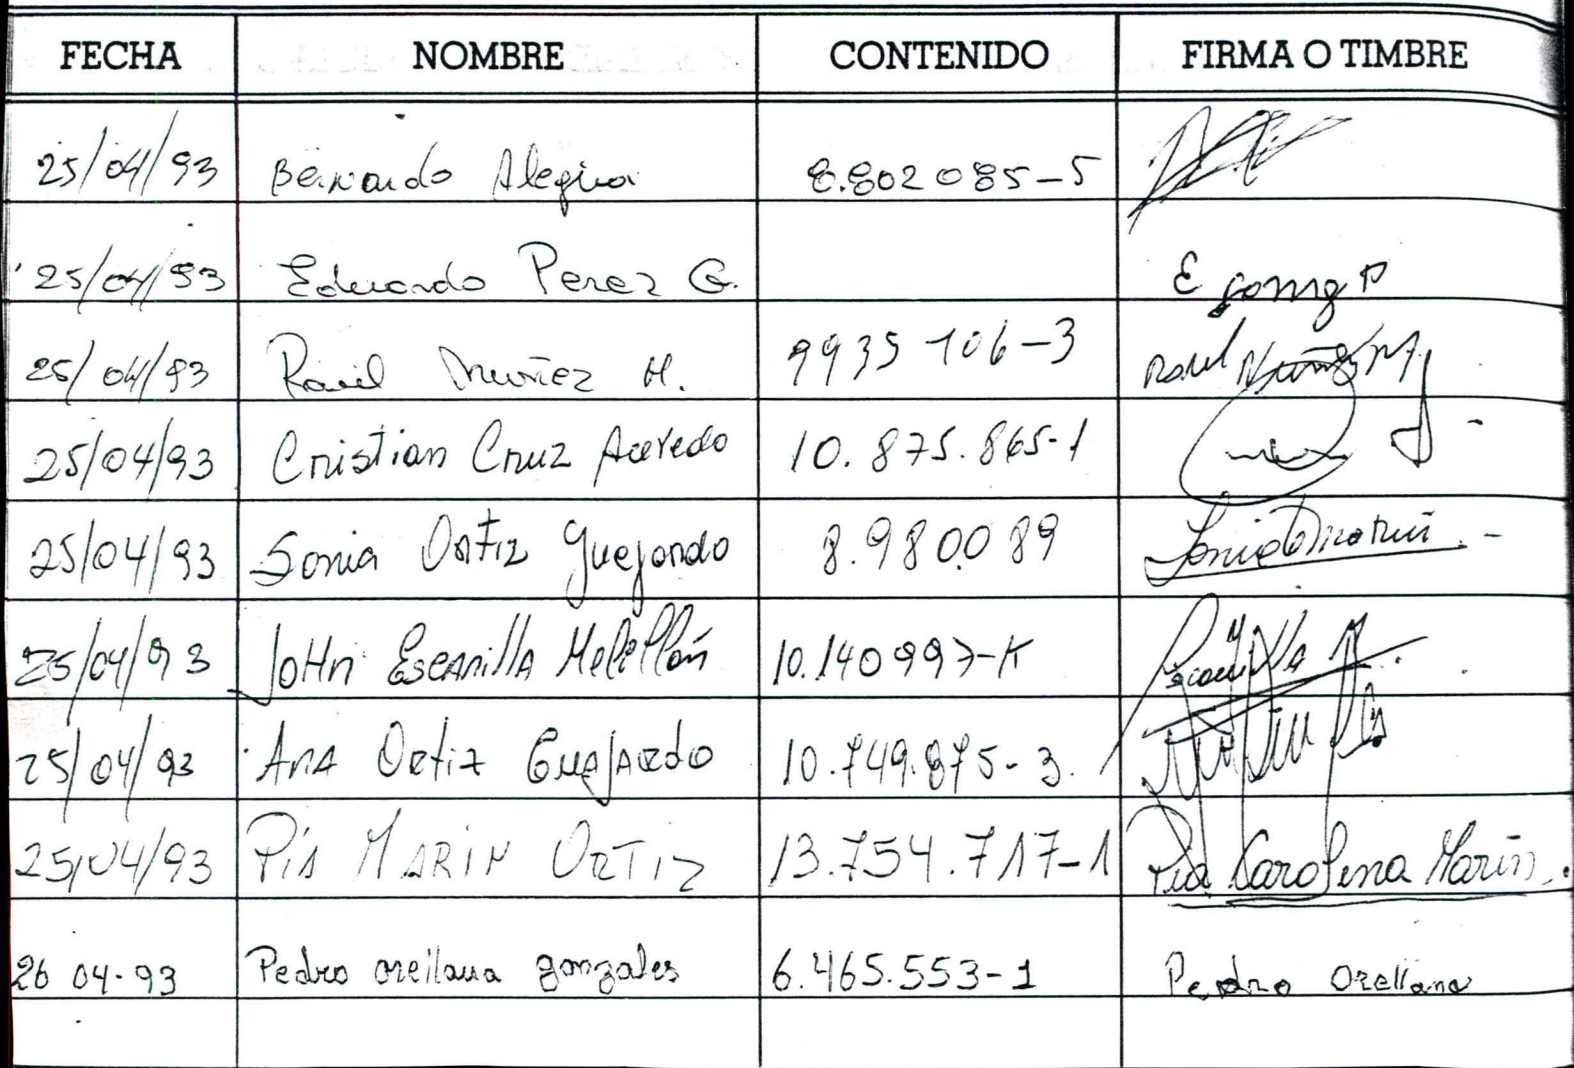 FECHA NOMBRE CONTENIDO FIRMA O TIMBRE
25/04/93 Bernardo Alegria 8.802085-5
25/04/93 Eduardo Perez G. E
25/04/93 Raúl Muñez M. 9935106-3 Raul Nuñez M
25/04/93 Cristian Cruz Acevedo 10.875.865-1
25/04/93 Sonia Ortiz Guejardo 8.980.089
25/04/93 JoHn EscanillA Melillán 10.140997-K
25/04/93 AnA Ortiz Guajardo 10.749.875-3.
25/04/93 PíA MARIN ORTIz 13.754.717-1 Pía Carolina Marín.
26 04-93 Pedro orellana gonzales 6.465.553-1 Perdro Orellana